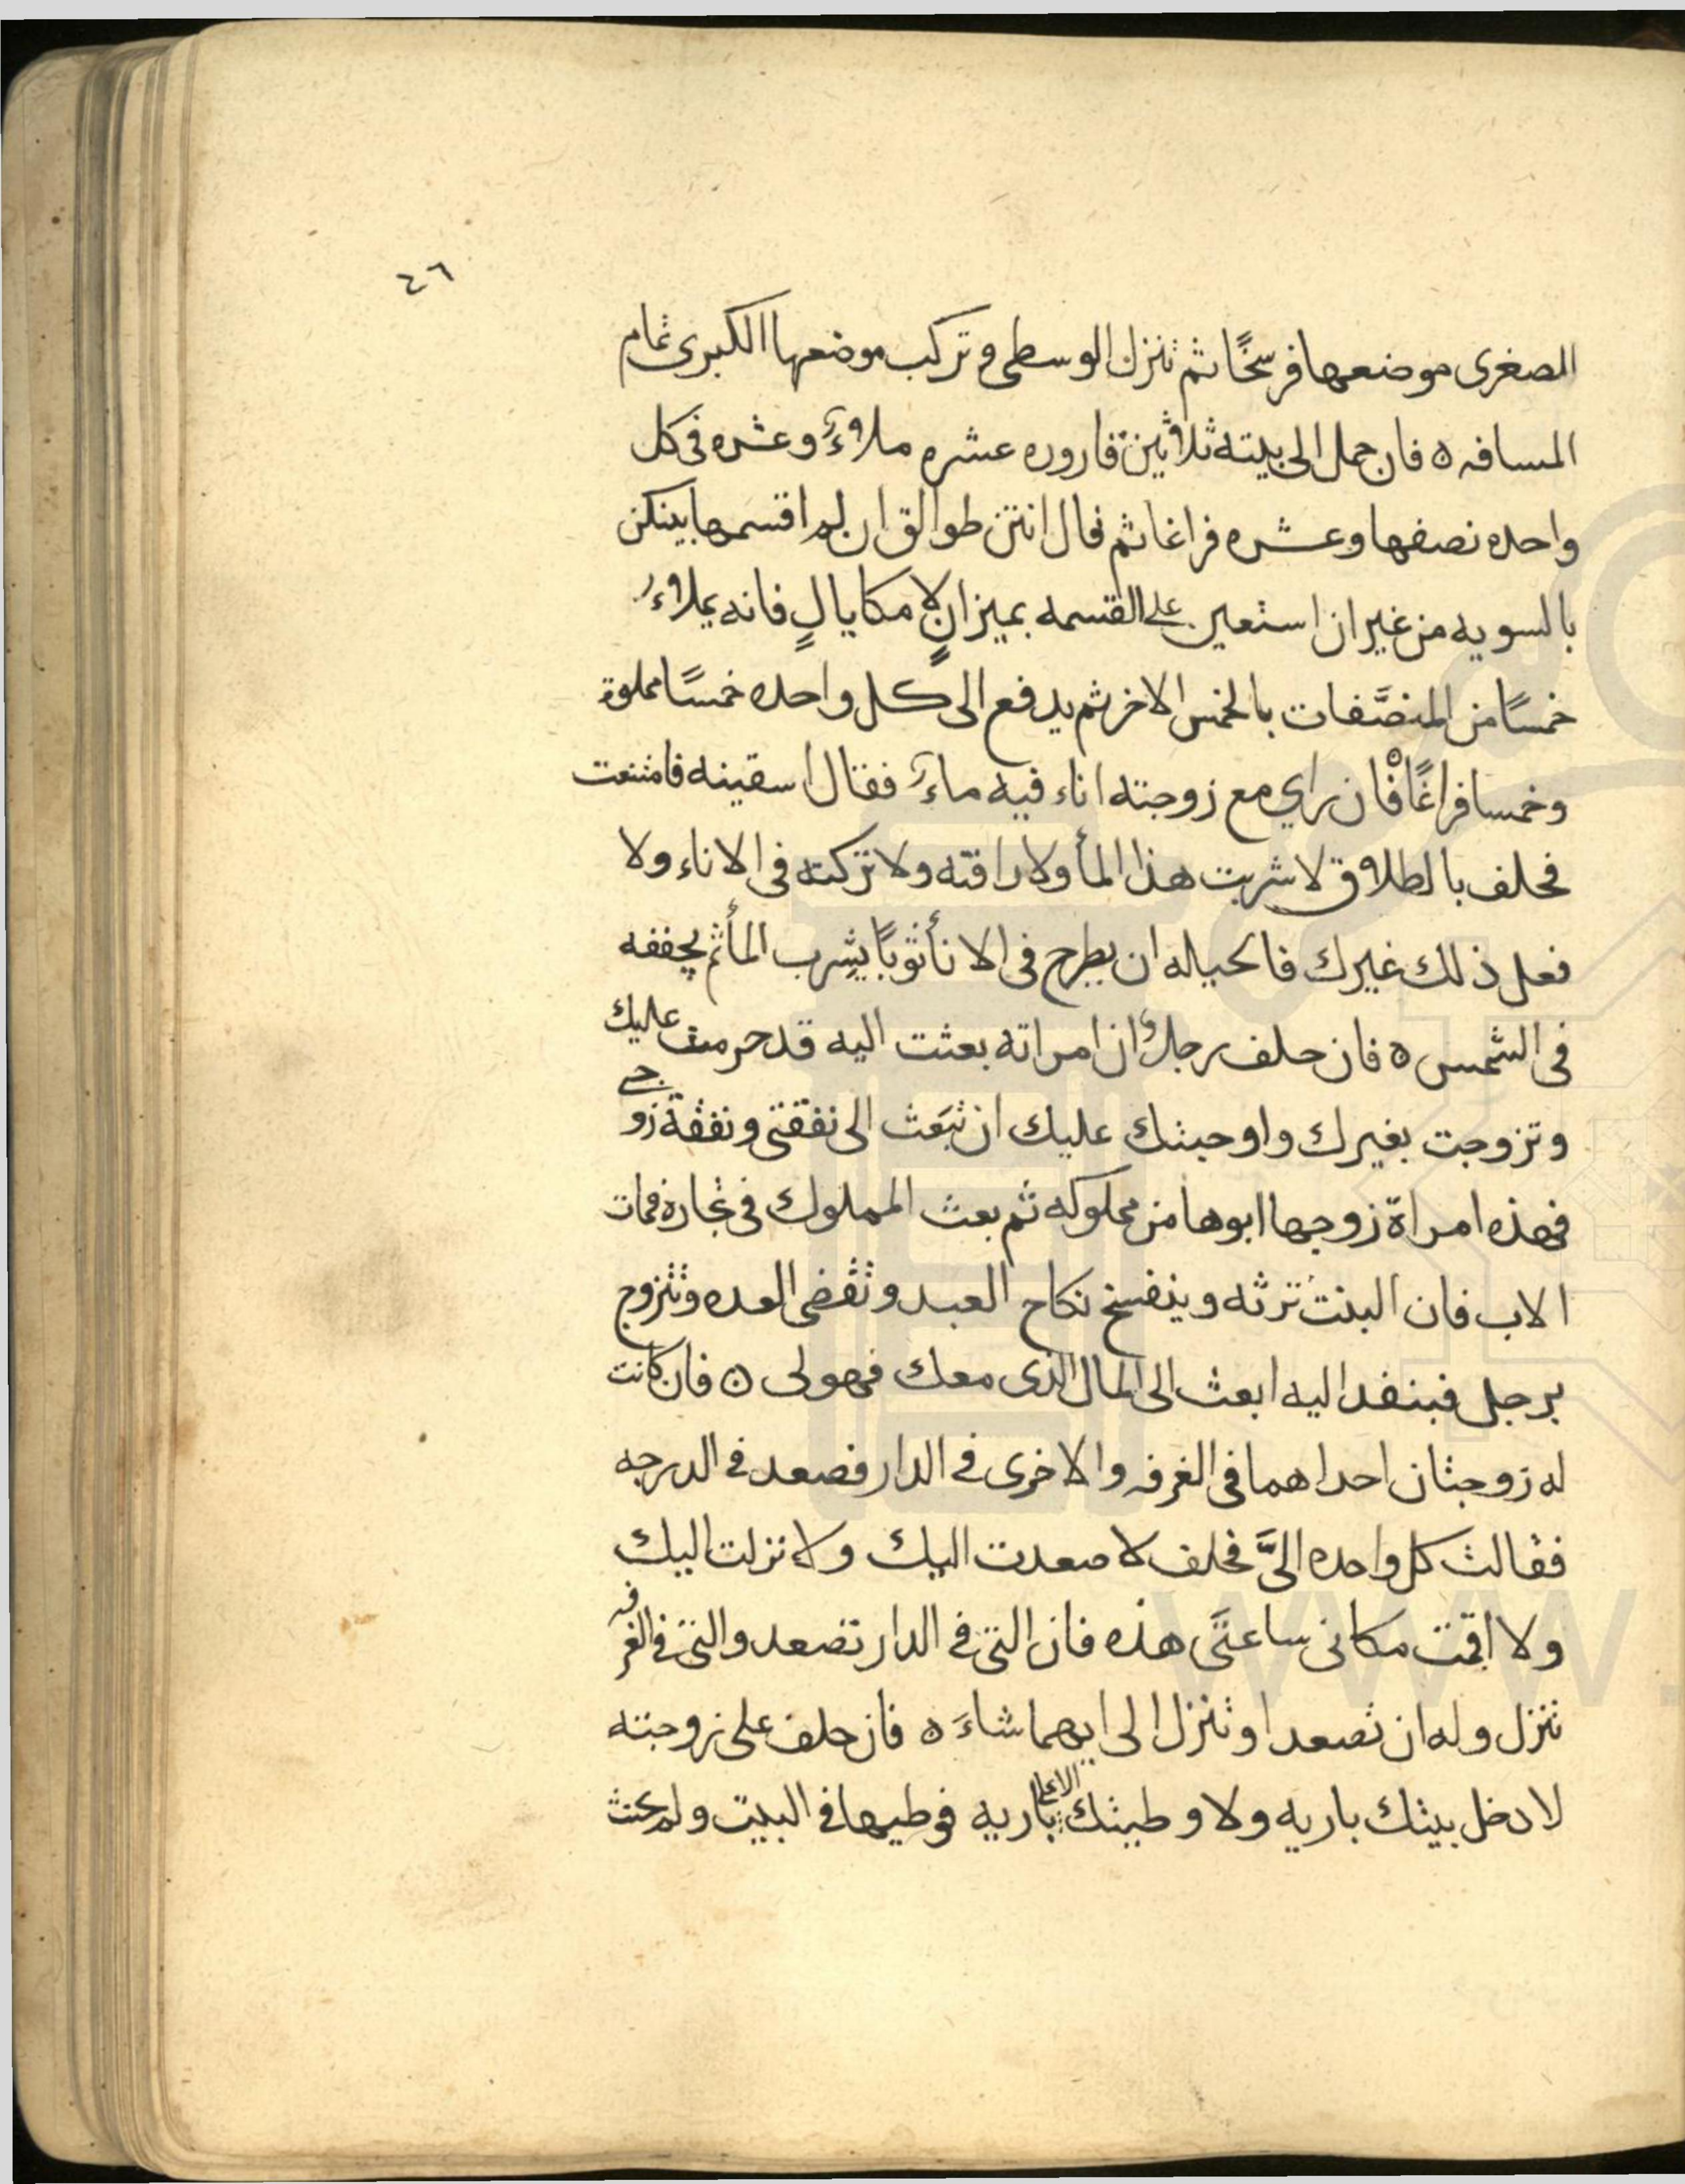 ٤٦
الصغرى موضعها فرسخًا ثم تنزل الوسطى وتركب موضعها الكبرى تمام
المسافه ه فان حمل الى بيته ثلاثين قاروره عشره ملاوءَ وعشره فى كل
واحده نصفها وعشره فراغا ثم قال انتن طوالق ان لم اقسمها بينكن
بالسويه من غير ان استعين على القسمه بميزانٍ لا مكايالٍ فانه يملاءُ
خمسًا من المنصَّفات بالخمس الاخر ثم يدفع الى كل واحده خمسًا مملوة
وخمسا فراغًا فان راي مع زوجته اناء فيه ماءَ فقال اسقينه فامتنعت
فحلف بالطلاق لا شربت هذا المأ ولا راقته ولا تركته فى الاناء ولا
فعل ذلك غيرك فالحياله ان يطرح فى الانأ ثوبًا يشرب المأ ثم يجففه
فى الشمس ه فان حلف رجلٌ ان امراته بعثت اليه قد حرمت عليك
وتزوجت بغيرك واوجبتك عليك ان تبعَث الى نفقتى ونفقة زوجى
فهذه امراة زوجها ابوها من مملوكه ثم بعث المملوك فى تجارة فمات
الاب فان البنت ترثه وينفسخ نكاح العبد وتقضى العده وتتزوج
برجل فبنفد اليه ابعث الى المال الذى معك فهو لى ه فان كانت
له زوجتان احداهما فى الغرفه والاخرى فى الدار فصعد فى الدرجه
فقالت كل واحده الىَّ فحلف لا صعدت اليك ولا نزلت اليك
ولا اقمت مكانى ساعتَى هذه فان التى فى الدار تصعد والتى فى الغرفه
تنزل وله ان تصعد او تنزل الى ايهما شاءَ ه فان حلف على زوجته
لا دخل بيتك باريه ولا وطيتك الا على باريه فوطيها فى البيت ولم يحنث